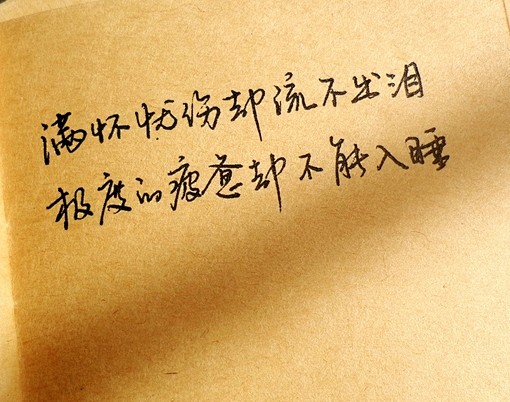 满怀忧伤却流不出泪
极度的疲惫却不能入睡